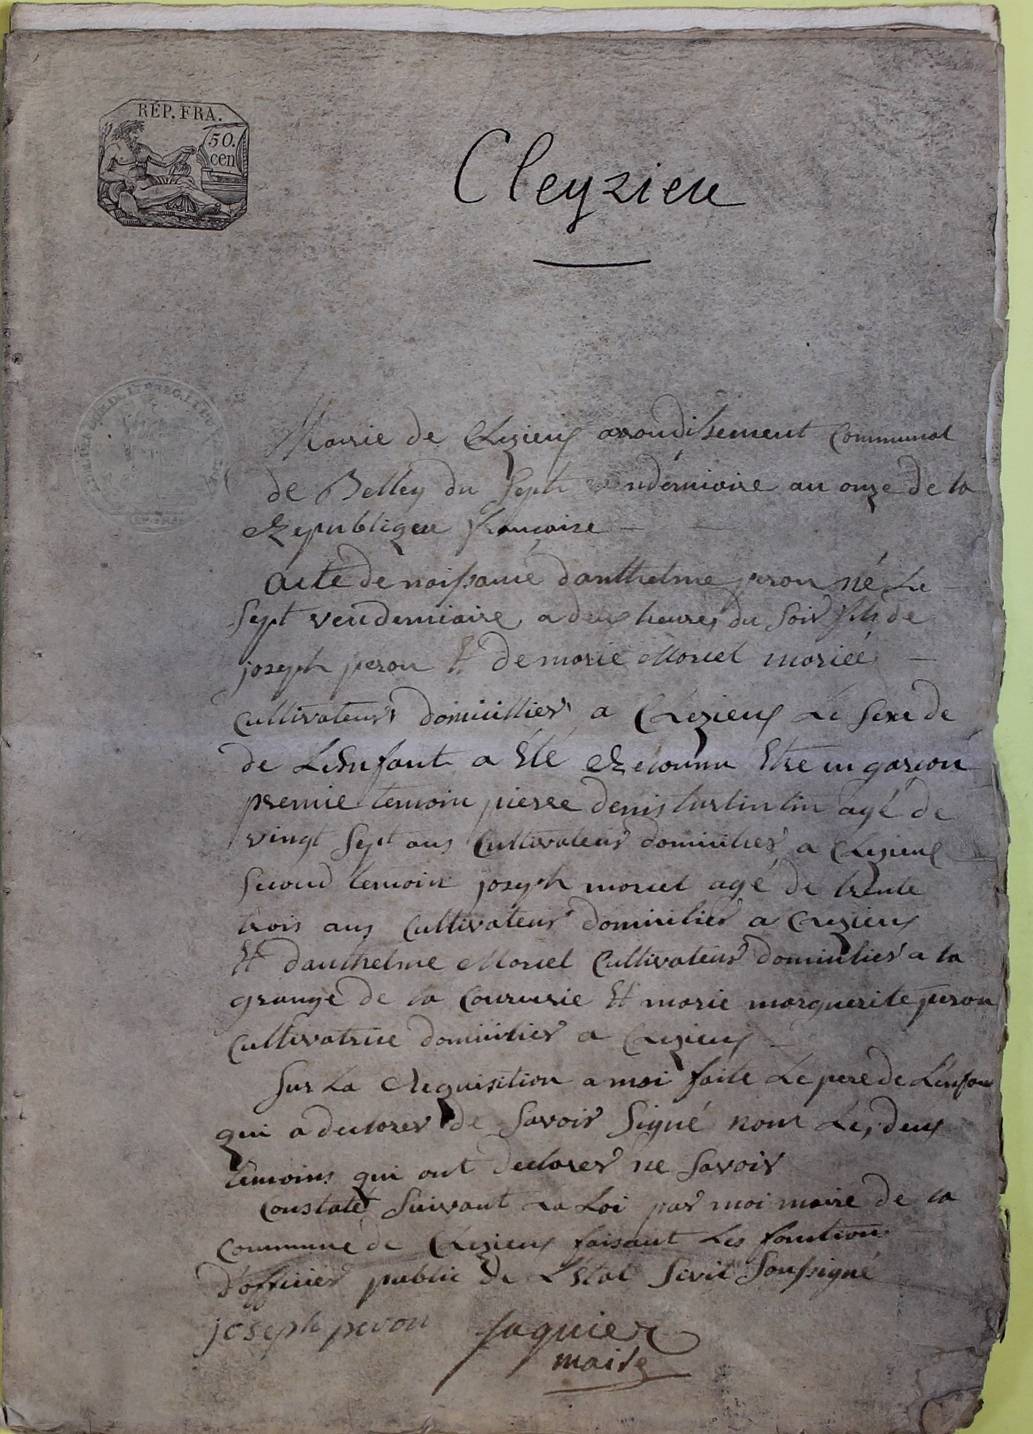 RÉP. FRA.
50.
cen
Cleyzieu
Mairie de Clezieux arrondissement communal
de Belley du sept vendémiaire an onze de la
Republique francaise
acte de naissance danthelme peron né le
sept vendemiaire a deux heures du soir fils de
joseph peron Et de marie Moriel mariée
cultivateurs domicillier a Clezieux Le sexe de
de Lenfant a Eté Reconnu Etre un garcon
premie temoin pierre denis agé de
vingt sept ans Cultivateur domicilier a Clezieux
second temoin joseph moriel agé de trente
trois ans Cultivateur domicilier a Clezieux
Et danthelme Moriel Cultivateur domicilier a la
grange de la Et marie marguerite peron
Cultivatrice domicilier a Clezieux
Sur La Requisition a moi faite Le pere de Lenfan
qui a declarer de Savoir Signé nom Les deux
temoins qui ont declarer ne Savoir
Constaté Suivant La Loi par moi maire de la
Commune de Clezieux faisant Les fonctions
d'officier public de L'Etat Sivil Soussigné
joseph peron Jaquier
maire